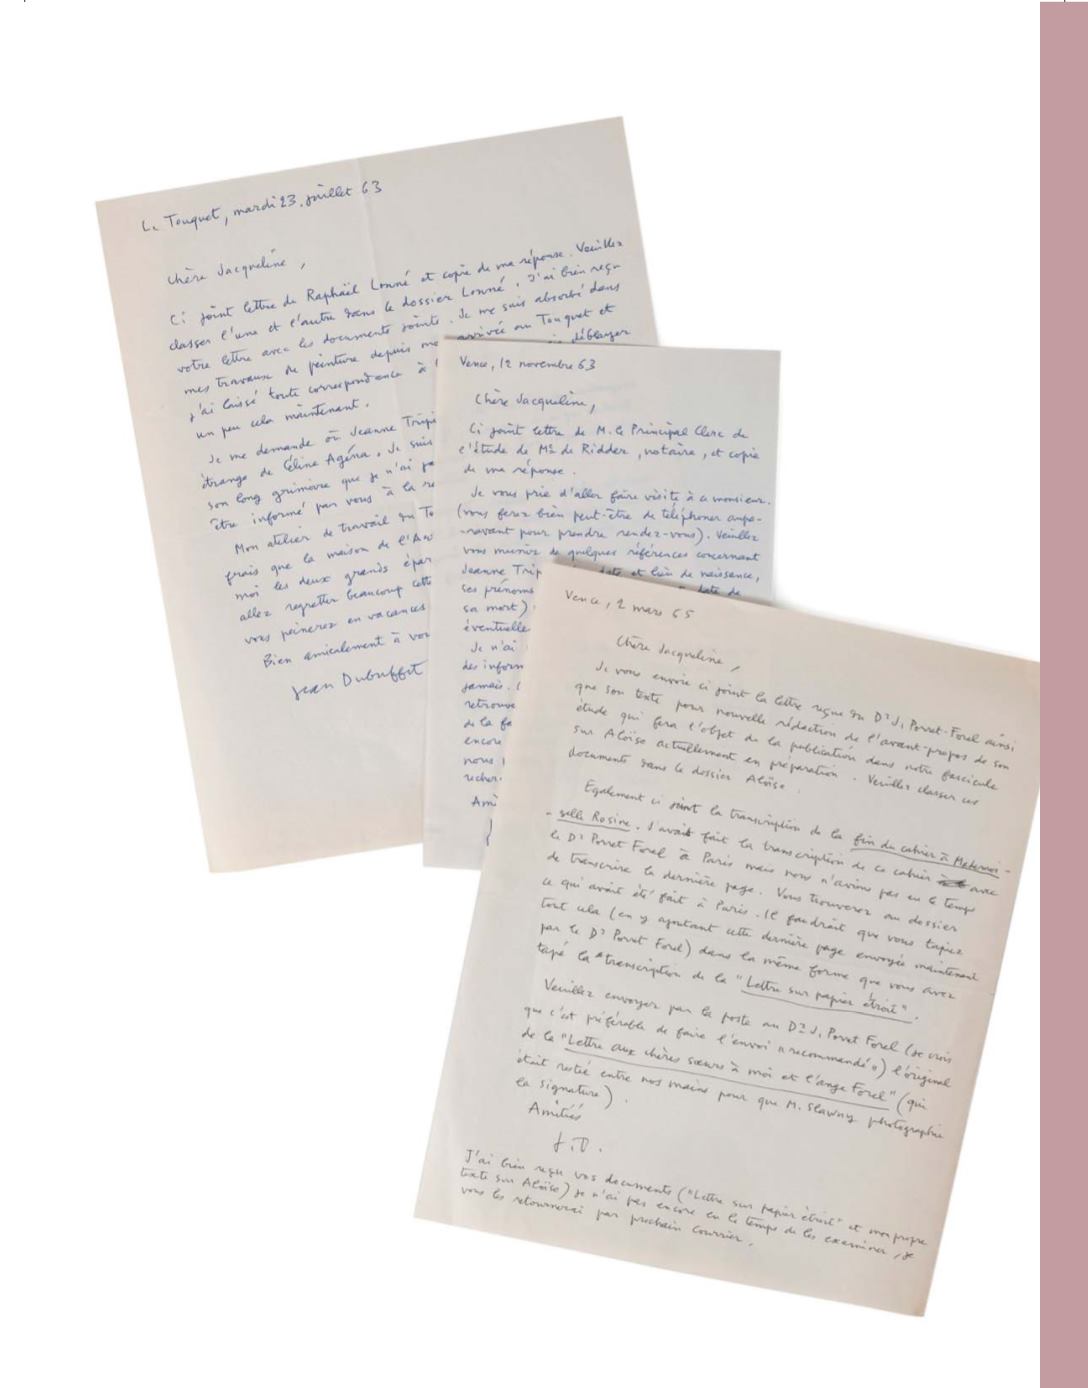 Le Touquet, mardi 23 juillet 63
Chère Jacqueline,
Ci joint lettre de Raphaël Lonné et copie de ma réponse. Veuillez
classer l'une et l'autre dans le dossier Lonné. J'ai bien reçu
votre lettre avec les documents joints. Je me suis absorbé dans
mes travaux de peinture depuis mon arrivée au Touquet et
j'ai laissé toute correspondance à déblayer
un peu cela maintenant.
Je me demande où Jeanne Tripi
étrange de Céline Agéna. Je suis
son long grimoire que je n'ai pa
être informé par vous à la re
Mon atelier de travail du To
frais que la maison de l'A
moi les deux grands épar
allez regretter beaucoup cette
vous peinerez en vacances
Bien amicalement à vou
Jean Dubuffet
Vence, 12 novembre 63
Chère Jacqueline,
Ci joint lettre de M. le Principal Clerc de
l'étude de Me de Ridder, notaire, et copie
de ma réponse.
Je vous prie d'aller faire visite à ce monsieur.
(vous ferez bien peut-être de téléphoner aupa-
-ravant pour prendre rendez-vous). Veuillez
vous munir de quelques références concernant
Jeanne Trip date et lieu de naissance,
ses prénoms date de
sa mort)
éventuelle
Je n'ai
des inform
jamais. (
retrouve
de la fa
encore
nous
recher
Ami
Vence, 2 mars 65
Chère Jacqueline,
Je vous envoie ci joint la lettre reçue du Dr J. Porret-Forel ainsi
que son texte pour nouvelle rédaction de l'avant-propos de son
étude qui fera l'objet de la publication dans notre fascicule
sur Aloïse actuellement en préparation. Veuillez classer ces
documents dans le dossier Aloïse.
Egalement ci joint la transcription de la fin du cahier à Mademoi-
-selle Rosine. J'avais fait la transcription de ce cahier avec
le Dr Porret Forel à Paris mais nous n'avions pas eu le temps
de transcrire la dernière page. Vous trouverez au dossier
ce qui avait été fait à Paris. Il faudrait que vous tapiez
tout cela (en y ajoutant cette dernière page envoyée maintenant
par le Dr Porret Forel) dans la même forme que vous avez
tapé la transcription de la "Lettre sur papier étroit".
Veuillez envoyer par la poste au Dr J. Porret Forel (je crois
que c'est préférable de faire l'envoi "recommandé") l'original
de la "Lettre aux chères sœurs à moi et l'ange Forel" (qui
était restée entre nos mains pour que M. Slawny photographie
la signature).
Amitiés
J.D.
J'ai bien reçu vos documents ("Lettre sur papier étroit" et mon propre
texte sur Aloïse) je n'ai pas encore eu le temps de les examiner, je
vous les retournerai par prochain courrier.